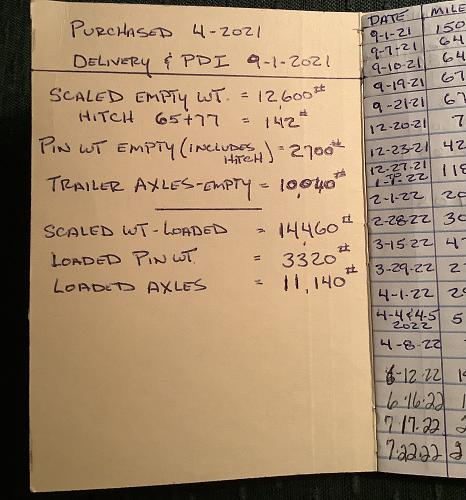 PURCHASED 4-2021
DELIVERY & PDI 9-1-2021
SCALED EMPTY WT. = 12,600#
HITCH 65+77 = 142#
PIN WT EMPTY (INCLUDES HITCH) = 2700#
TRAILER AXLES-EMPTY = 10,040#
SCALED WT-LOADED = 14,460#
LOADED PIN WT = 3320#
LOADED AXLES = 11,140#
DATE MILE
9-1-21 150
9-7-21 64
9-10-21 64
9-19-21 67
9-21-21 67
12-20-21 7
12-23-21 42
12-27-21
1-7-22 118
2-1-22 20
2-28-22 30
3-15-22
3-29-22 2
4-1-22 20
4-4&4-5 2022 5
4-8-22
6-12-22 1
6-16-22 1
7-17-22 2
7-22-22 2